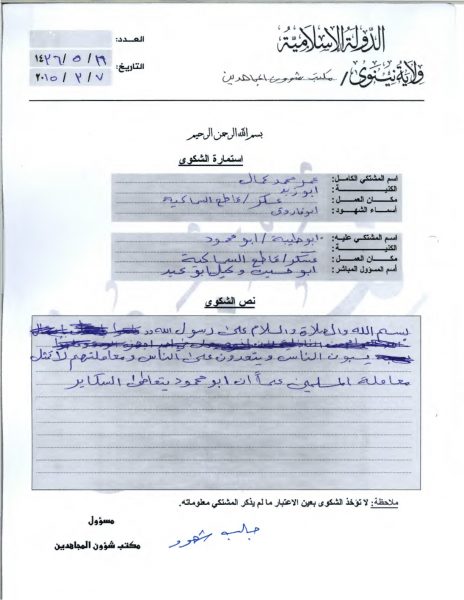 الدولة الإسلامية
ولاية نينوى/ مكتب شؤون المجاهدين
العدد:
التاريخ: ١٤٣٦/٥/١٦
٢٠١٥/٣/٧
بسم الله الرحمن الرحيم
استمارة الشكوى
اسم المشتكي الكامل: عمر محمد جمال
الكنية: ابو زيد
مكان العمل: عسكر/قاطع الساحلية
أسماء الشهود: ابو فاروق
اسم المشتكى عليه: ابو طيبة/ابو محمود
الكنية:
مكان العمل: عسكر/قاطع الساحلية
اسم المسؤول المباشر: ابو
نص الشكوى
بسم الله والصلاة والسلام على رسول الله
يسبون الناس ويتعدون على الناس ومعاملتهم لا تمثل
معاملة المسلمين علماً ان ابو محمود يتعاطى السكاير
ملاحظة: لا تؤخذ الشكوى بعين الاعتبار ما لم يذكر المشتكي معلوماته.
مسؤول
مكتب شؤون المجاهدين
شهود